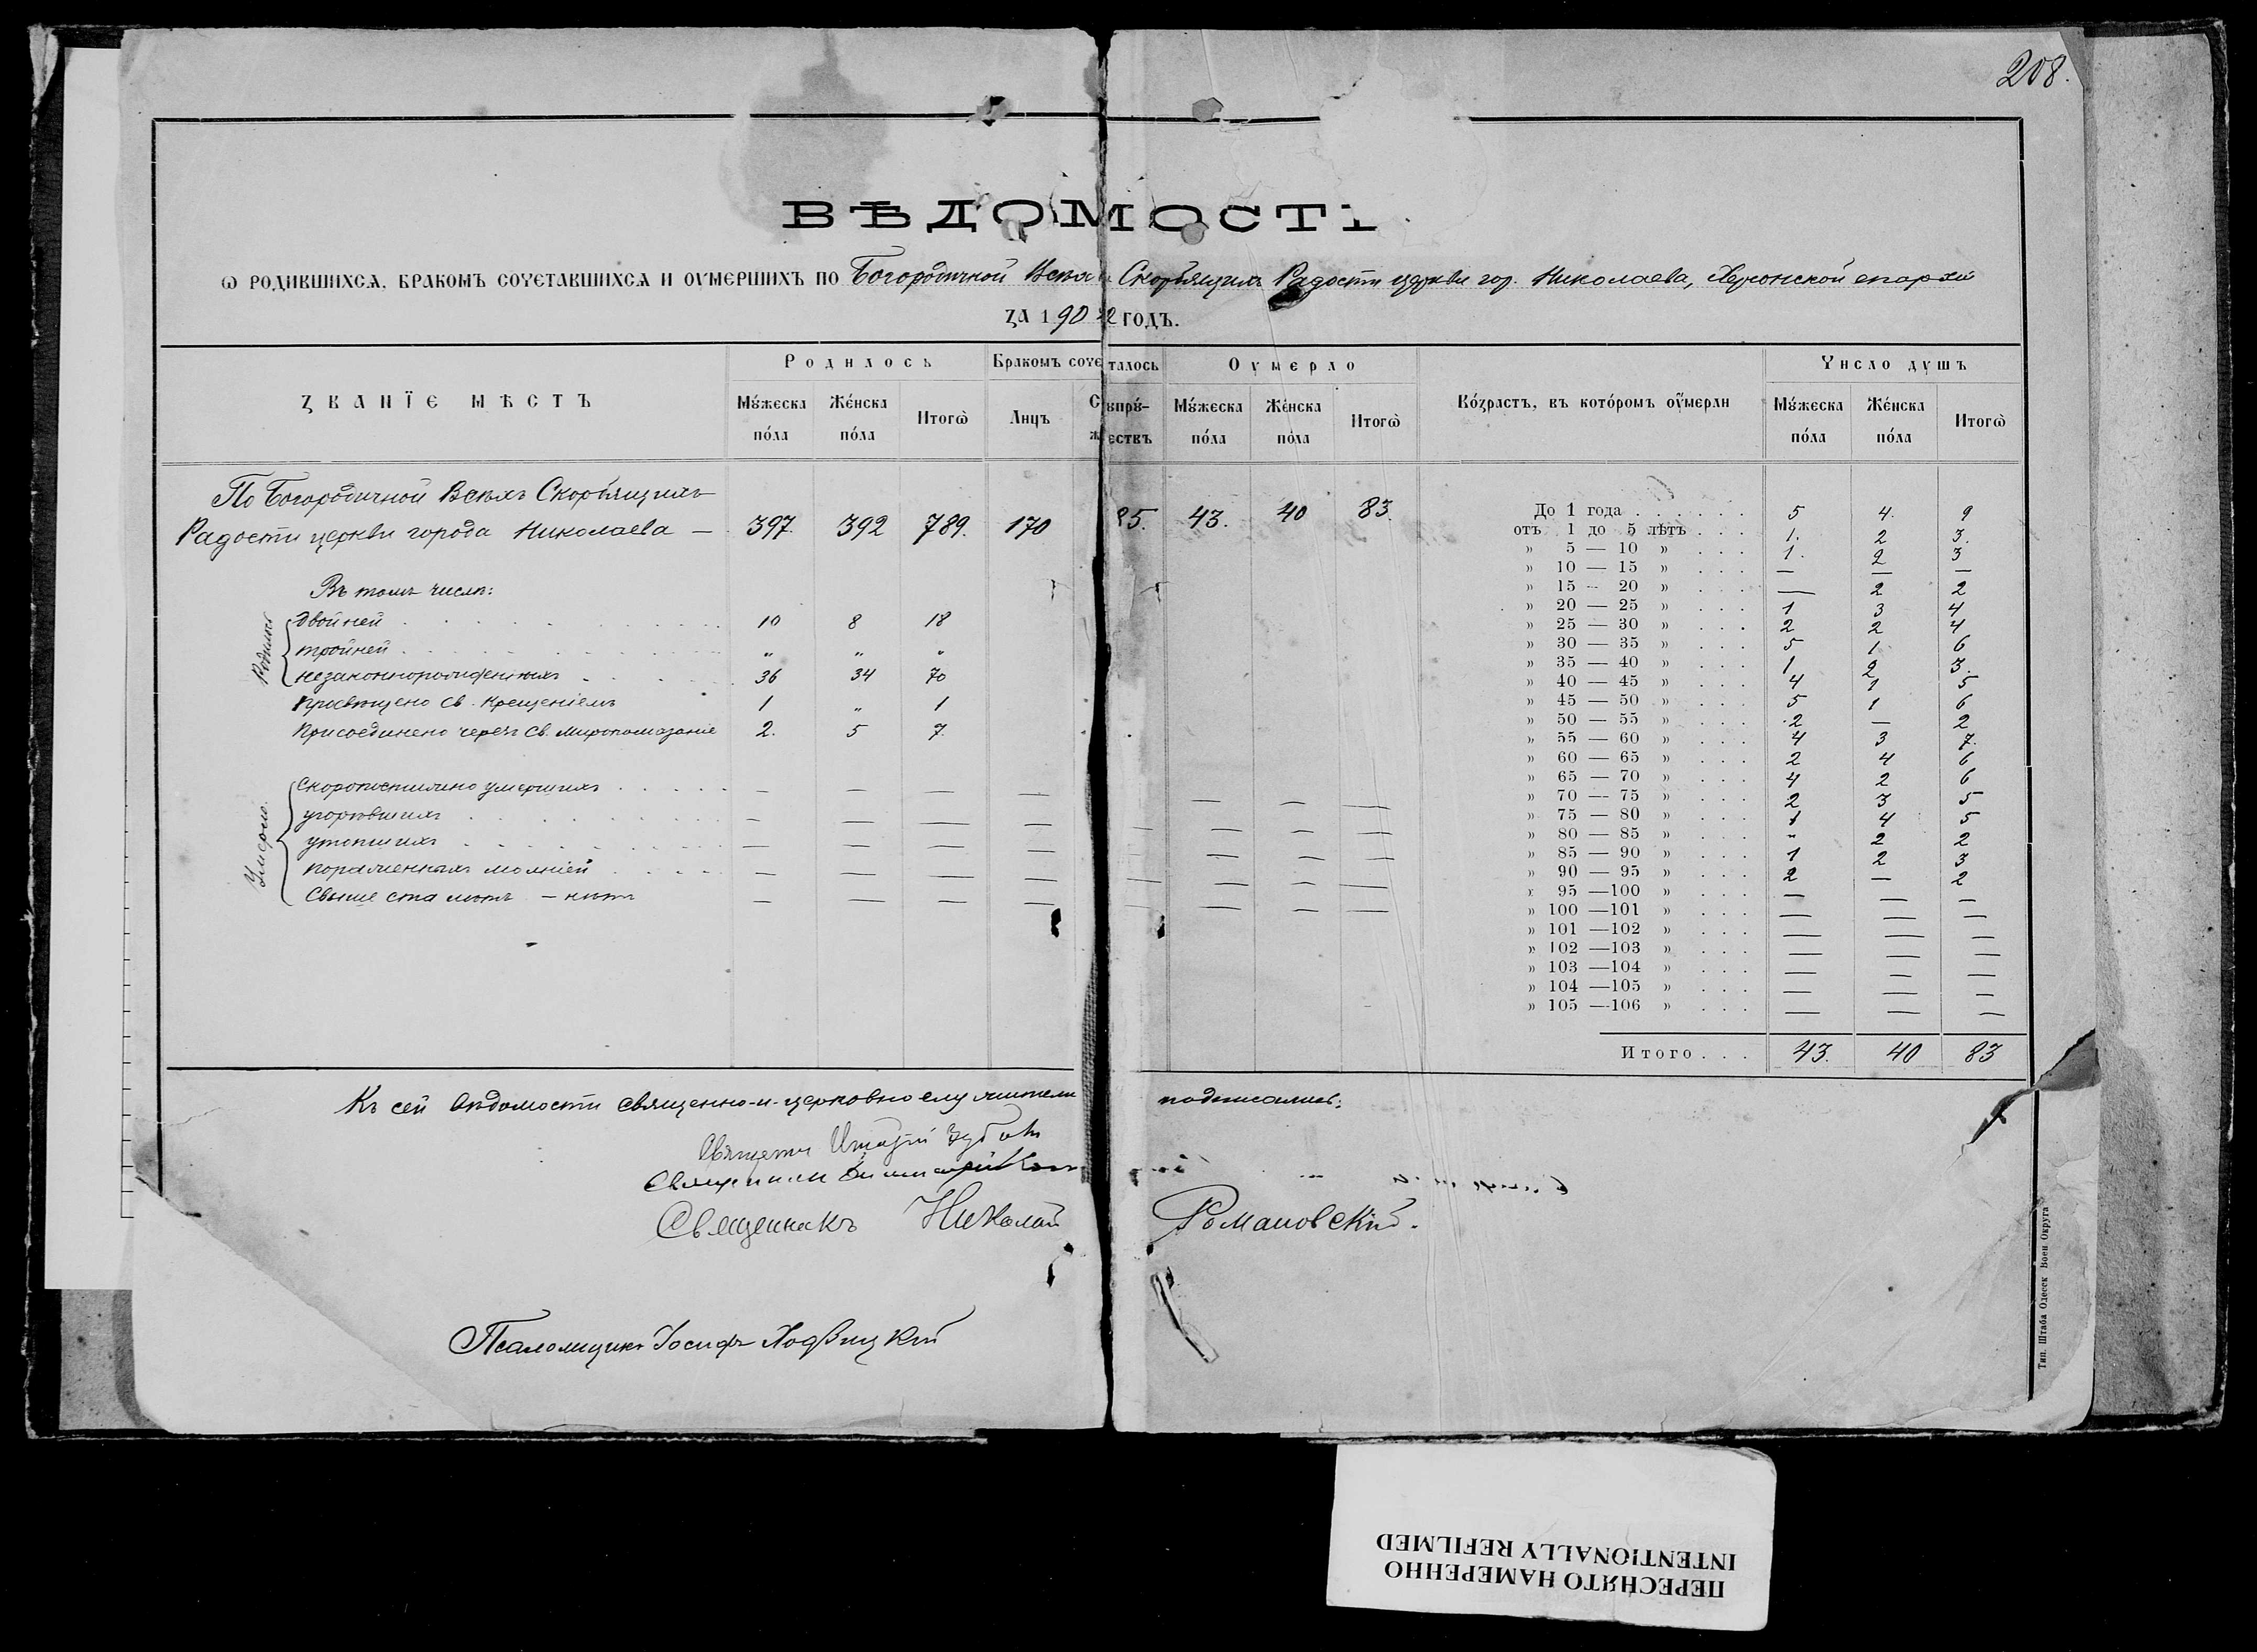 208.
ВѢДОМОСТЬ
Ѡ РОДИВШИХСѦ, БРАКОМЪ СОЧЕТАВШИХСѦ И ОУМЕРШИХЪ ПО Богородичной Всѣхъ Скорбящихъ Радости церкви гор. Николаева, Херсонской епархіи
ЗА 1902 ГОДЪ.
ЗВАНЇЕ МѢСТЪ
Родилось
Бракомъ сочеталось
Оумерло
Во́зрастъ, въ кото́ромъ оу҆́мерли
Число душъ
Мꙋ́жеска по́ла
Же́нска по́ла
Итогѡ̀
Лицъ
Супрꙋ́жествъ
Мꙋ́жеска по́ла
Же́нска по́ла
Итогѡ̀
Мꙋ́жеска по́ла
Же́нска по́ла
Итогѡ̀
По Богородичной Всѣхъ Скорбящихъ
Радости церкви города Николаева — 397. 392 789. 170 85. 43. 40 83.
Въ томъ числѣ:
Родилось
двойней 10 8 18
тройней „ „ „
незаконнорожденныхъ 36 34 70
Просвѣщено Св. Крещеніемъ 1 „ 1
Присоединено черезъ Св. Миропомазаніе 2. 5 7.
Умерло.
Скоропостижно умершихъ — — — — — — —
угорѣвшихъ — — — — — — — —
утопшихъ — — — — — — —
пораженныхъ молніей — — — — — — — —
Свыше ста лѣтъ — нѣтъ — — — — — — — —
До 1 года 5 4. 9
отъ 1 до 5 лѣтъ 1. 2 3.
» 5 — 10 » 1. 2 3
» 10 — 15 » — — —
» 15 — 20 » — 2 2
» 20 — 25 » 1 3 4
» 25 — 30 » 2 2 4
» 30 — 35 » 5 1 6
» 35 — 40 » 1 2 3.
» 40 — 45 » 4 1 5
» 45 — 50 » 5 1 6
» 50 — 55 » 2 — 2
» 55 — 60 » 4 3 7.
» 60 — 65 » 2 4 6
» 65 — 70 » 4 2 6
» 70 — 75 » 2 3 5
» 75 — 80 » 1 4 5
» 80 — 85 » „ 2 2
» 85 — 90 » 1 2 3
» 90 — 95 » 2 — 2
» 95 —100 » — — —
» 100 —101 » — — —
» 101 —102 » — — —
» 102 —103 » — — —
» 103 —104 » — — —
» 104 —105 » — — —
» 105 —106 » — — —
Итого . . . 43. 40 83
Къ сей вѣдомости священно-и-церковно служители подписались:
Священникъ
Священникъ
Священникъ Николай Романовскій.
Псаломщикъ Іосифъ
Тип. Штаба Одесск. Воен. Округа
ПЕРЕСНЯТО НАМЕРЕННО
INTENTIONALLY REFILMED